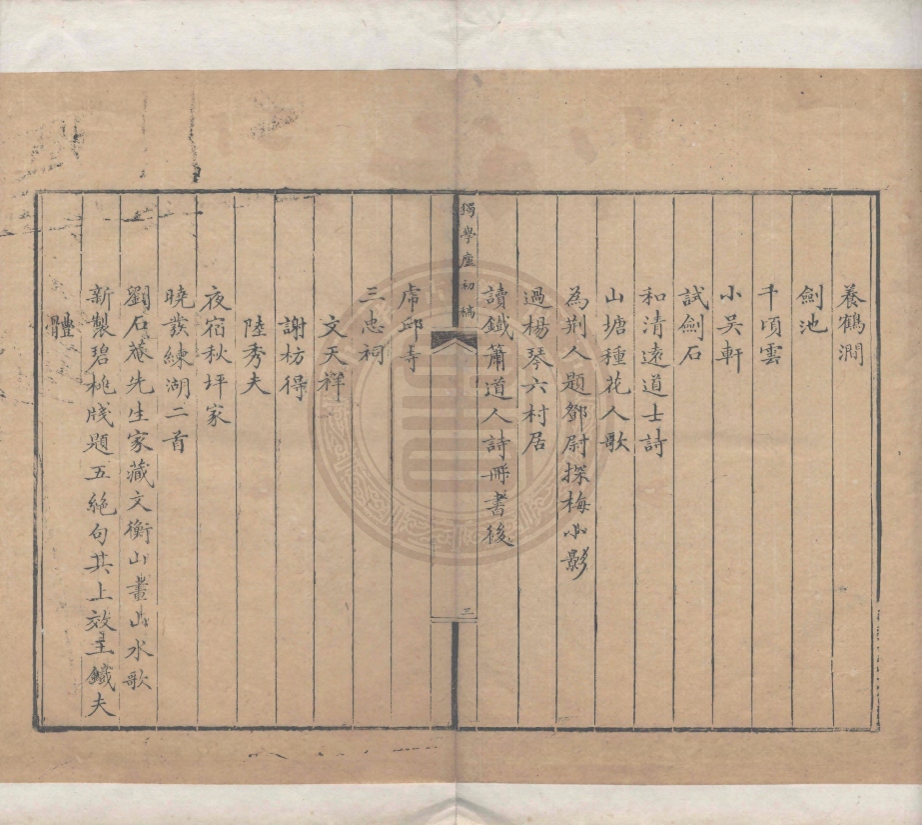 養鶴澗
劍池
千頃雲
小吳軒
試劍石
和清遠道士詩
山塘種花人歌
為荆人題鄧尉探梅小影
過楊琴六村居
讀鐵簫道人詩冊書後
獨學廬初稿
三
虎邱寺
三忠祠
文天祥
謝枋得
陸秀夫
夜宿秋坪家
曉發練湖二首
劉石菴先生家藏文衡山畫山水歌
新製碧桃牋題五絶句其上效王鐵夫
體